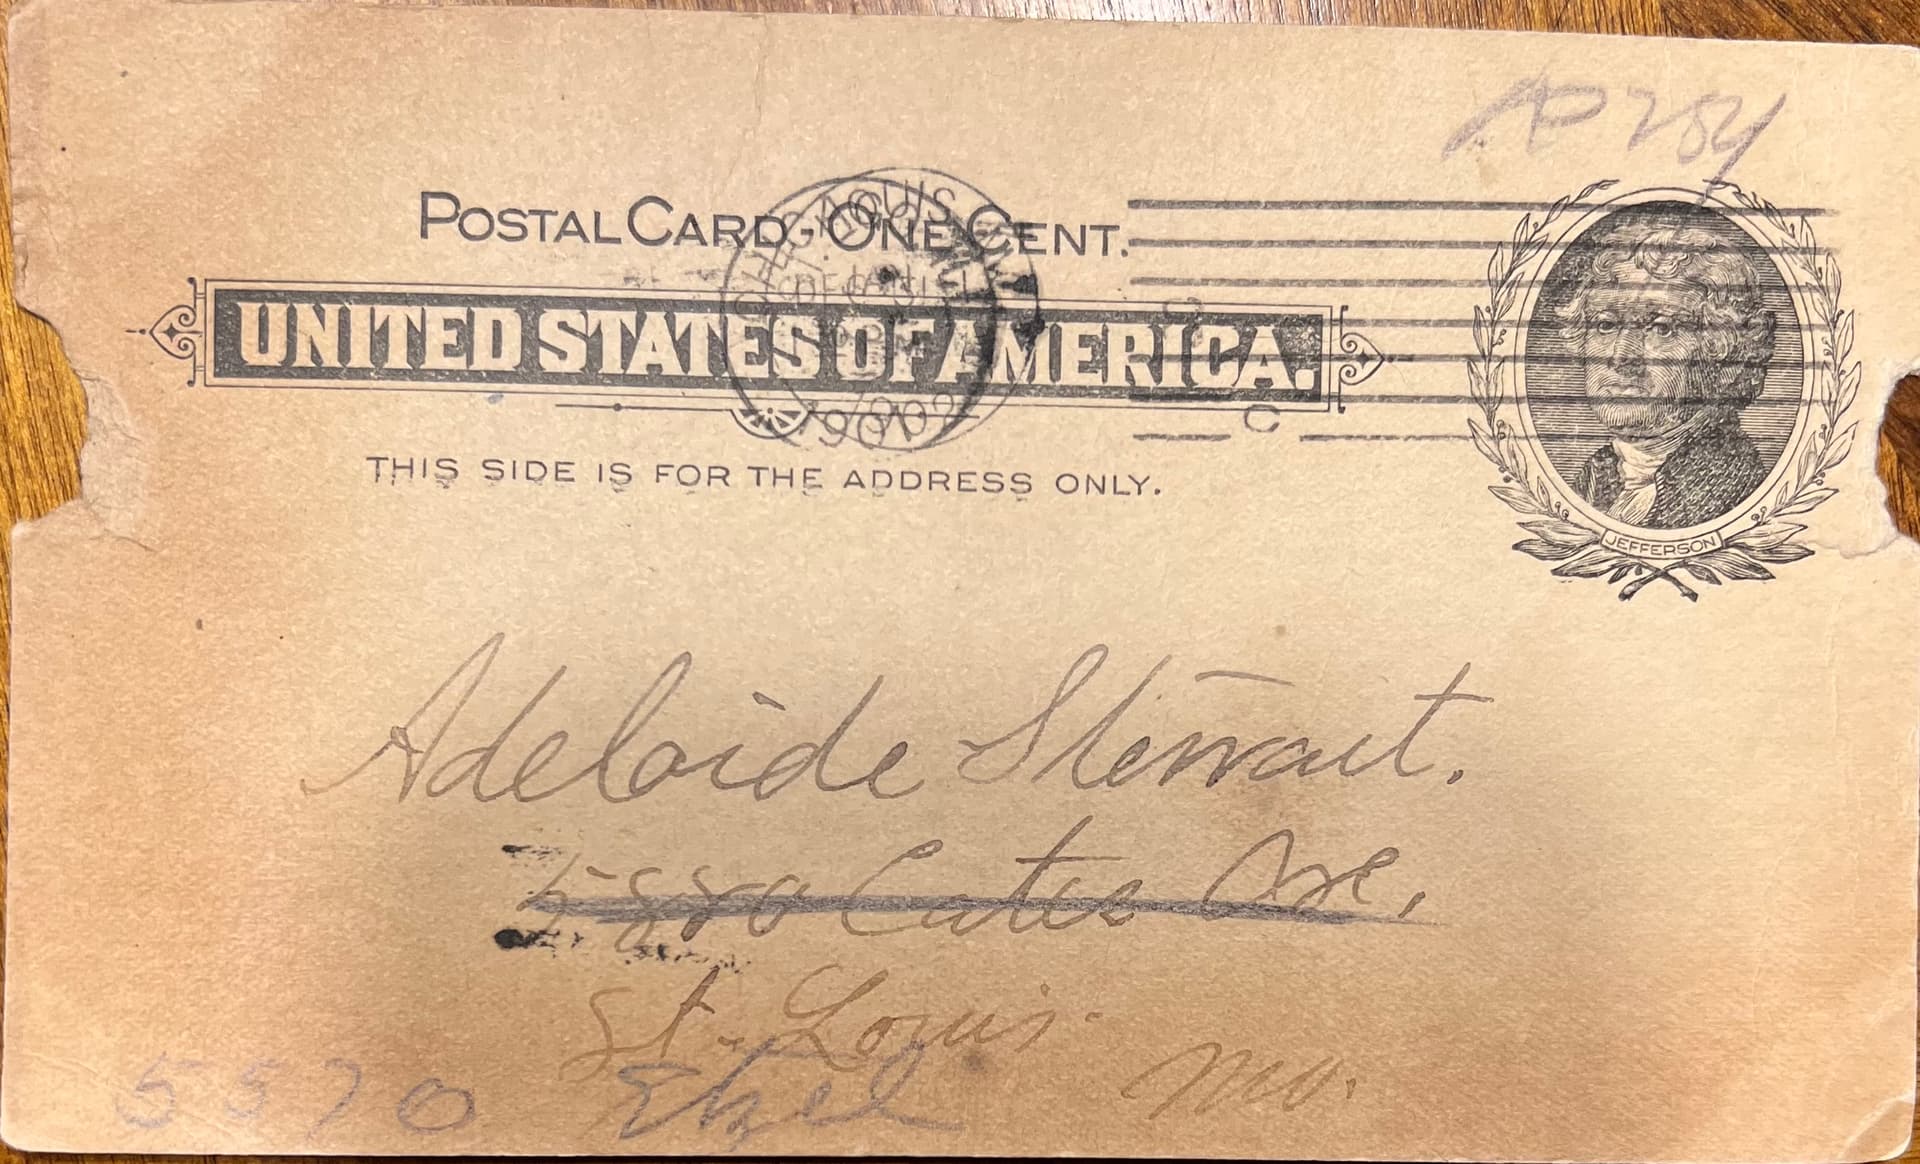 POSTAL CARD - ONE CENT.
UNITED STATES OF AMERICA.
THIS SIDE IS FOR THE ADDRESS ONLY.
JEFFERSON
Adelaide Stewart.
Cates Ave,
St. Louis.
Mo.
5570 Etzel